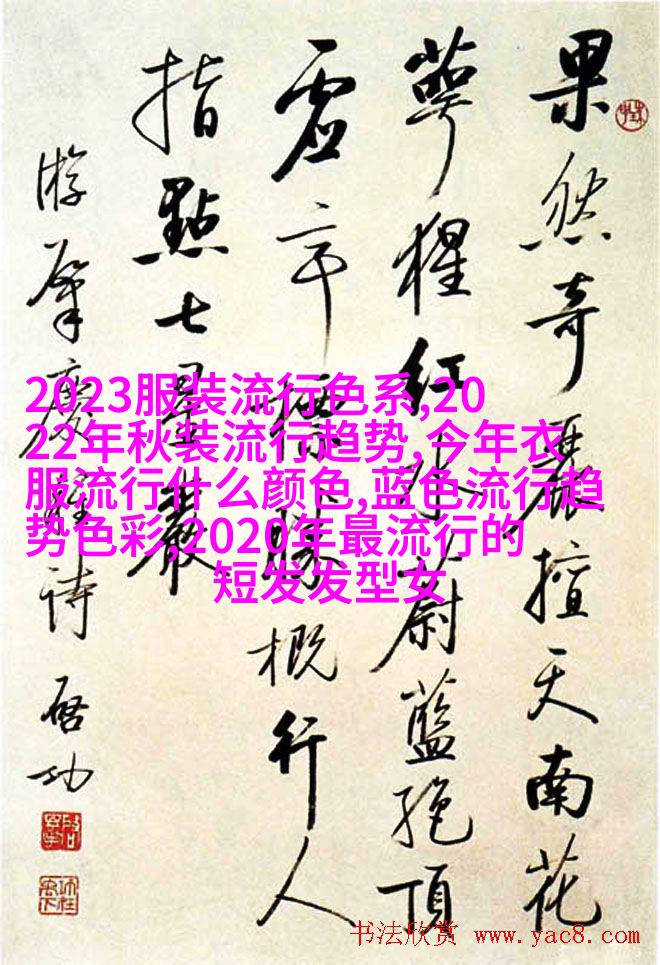 果然奇麗擅天南花
萼猩紅水蔚藍絕頂
虛亭勝概行人
指點七星巖
游肇慶詩 啓功
2023服装流行色系,20
22年秋装流行趋势,今年衣
服流行什么颜色,蓝色流行趋
势色彩,2020年最流行的
短发发型女
书法欣赏 www.yac8.com